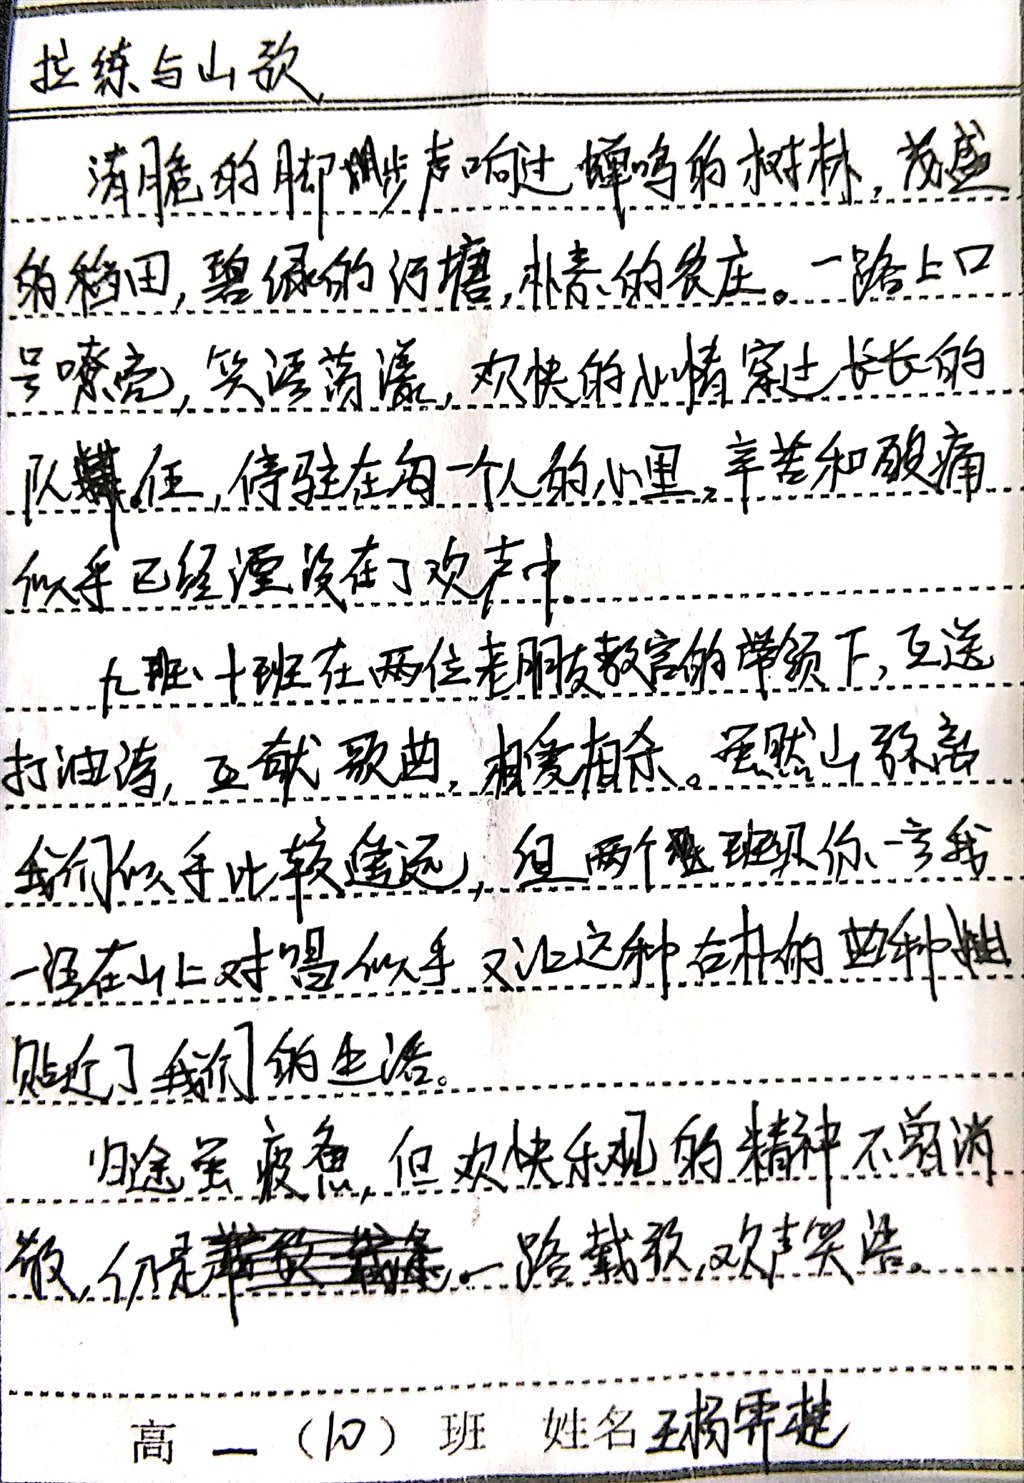 拉练与山歌
清脆的脚步声响过蝉鸣的树林,茂盛
的稻田,碧绿的河塘,朴素的农庄。一路上口
号嘹亮,笑语荡漾,欢快的心情穿过长长的
队伍,停驻在每一个人的心里,辛苦和酸痛
似乎已经湮没在了欢声中。
九班、十班在两位老朋友教官的带领下,互送
打油诗,互献歌曲,相爱相杀。虽然山歌离
我们似乎比较遥远,但两个班级你一言我
一语在山上对唱似乎又让这种古朴的曲种
贴近了我们的生活。
归途虽疲惫,但欢快乐观的精神不曾消
散,仍是一路载歌,欢声笑语。
高一(10)班 姓名王杨霁